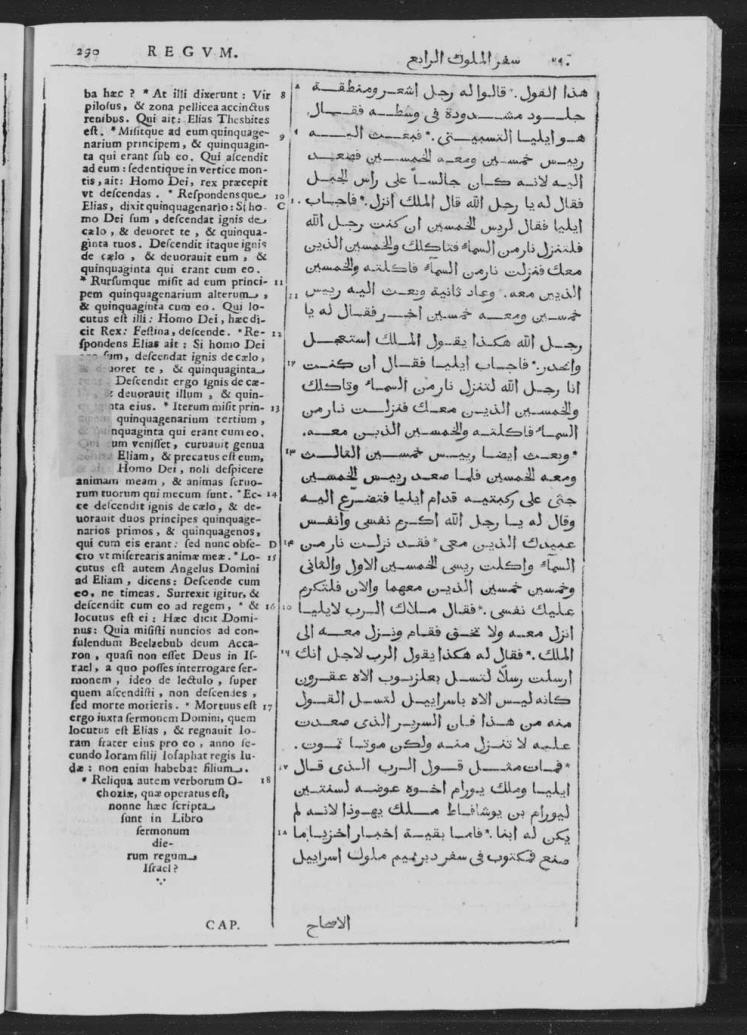 290 REGVM.
سفر الملوك الرابع ٢٩٠
ba hæc ? * At illi dixerunt : Vir 8
pilosus, & zona pellicea accinctus
renibus. Qui ait: Elias Thesbites
est. * Misitque ad eum quinquage- 9
narium principem, & quinquagin-
ta qui erant sub eo. Qui ascendit
ad eum : sedentique in vertice mon-
tis, ait: Homo Dei, rex præcepit
vt descendas. * Respondensque 10
Elias, dixit quinquagenario: Si ho- C
mo Dei sum , descendat ignis de
cælo , & deuoret te , & quinqua-
ginta tuos. Descendit itaque ignis
de cælo , & deuorauit eum , &
quinquaginta qui erant cum eo.
* Rursumque misit ad eum princi- 11
pem quinquagenarium alterum ,
& quinquaginta cum eo. Qui lo-
cutus est illi: Homo Dei, hæc di-
cit Rex: Festina, descende. * Re- 12
spondens Elias ait : Si homo Dei
sum, descendat ignis de cælo,
uoret te , & quinquaginta
Descendit ergo ignis de cæ-
deuorauit illum , & quin-
nta eius. * Iterum misit prin- 13
quinquagenarium tertium ,
nquaginta qui erant cum eo.
um venisset, curuauit genua
Eliam, & precatus est eum,
Homo Dei, noli despicere
animam meam , & animas seruo-
rum tuorum qui mecum sunt. * Ec- 14
ce descendit ignis de cælo, & de-
uorauit duos principes quinquage-
narios primos, & quinquagenos,
qui cum eis erant: sed nunc obse- D
cro vt miserearis animæ meæ. * Lo- 15
cutus est autem Angelus Domini
ad Eliam , dicens: Descende cum
eo, ne timeas. Surrexit igitur, &
descendit cum eo ad regem , * & 16
locutus est ei : Hæc dicit Domi-
nus: Quia misisti nuncios ad con-
sulendum Beelzebub deum Acca-
ron , quasi non esset Deus in Is-
rael, a quo posses interrogare ser-
monem , ideo de lectulo , super
quem ascendisti , non descendes ,
sed morte morieris. * Mortuus est 17
ergo iuxta sermonem Domini, quem
locutus est Elias , & regnauit Io-
ram frater eius pro eo , anno se-
cundo Ioram filij Iosaphat regis Iu-
dæ : non enim habebat filium .
* Reliqua autem verborum O- 18
choziæ, quæ operatus est,
nonne hæc scripta
sunt in Libro
sermonum
die-
rum regum
Israel ?
CAP.
هذا القول. * قالوا له رجل اشعر ومنطقة ٨
جلود مشدودة في وسطه فقال
هو ايليا التسبيتي. * فبعث اليه ٩
رييس خمسين ومعه الخمسين فصعد
اليه لانه كان جالسا على راس الجبل
فقال له يا رجل الله قال الملك انزل. * فاجاب ١٠
ايليا فقال لريس الخمسين ان كنت رجل الله
فلتنزل نار من السماء فتاكلك والخمسين الذين
معك فنزلت نار من السماء فاكلته والخمسين
الذين معه. وعاد ثانية وبعث اليه رييس ١١
خمسين ومعه خمسين اخر فقال له يا
رجل الله هكذا يقول الملك استعجل
وانحدر. * فاجاب ايليا فقال ان كنت ١٢
انا رجل الله لتنزل نار من السماء وتاكلك
والخمسين الذين معك فنزلت نار من
السماء فاكلته والخمسين الذين معه.
* وبعث ايضا رييس خمسين الثالث ١٣
ومعه الخمسين فلما صعد رييس الخمسين
جثى على ركبتيه قدام ايليا فتضرع اليه
وقال له يا رجل الله اكرم نفسي وانفس
عبيدك الذين معي * فقد نزلت نار من ١٤
السماء واكلت ريسي الخمسين الاول والثاني
وخمسين خمسين الذين معهما والان فلتكرم
عليك نفسي. * فقال ملاك الرب لايليا ١٥
انزل معه ولا تخف فقام ونزل معه الى
الملك. * فقال له هكذا يقول الرب لاجل انك ١٦
ارسلت رسلا لتسل بعلزبوب الاه عقرون
كانه ليس الاه باسراييل لتسل القول
منه من هذا فان السرير الذي صعدت
عليه لا تنزل منه ولكن موتا تموت.
* فمات مثل قول الرب الذي قال ١٧
ايليا وملك يورام اخوه عوضه لسنتين
ليورام بن يوشافاط ملك يهوذا لانه لم
يكن له ابنا. * فاما بقية اخبار اخزيا ما ١٨
صنع فمكتوب في سفر دبرييميم ملوك اسراييل
الاصحاح